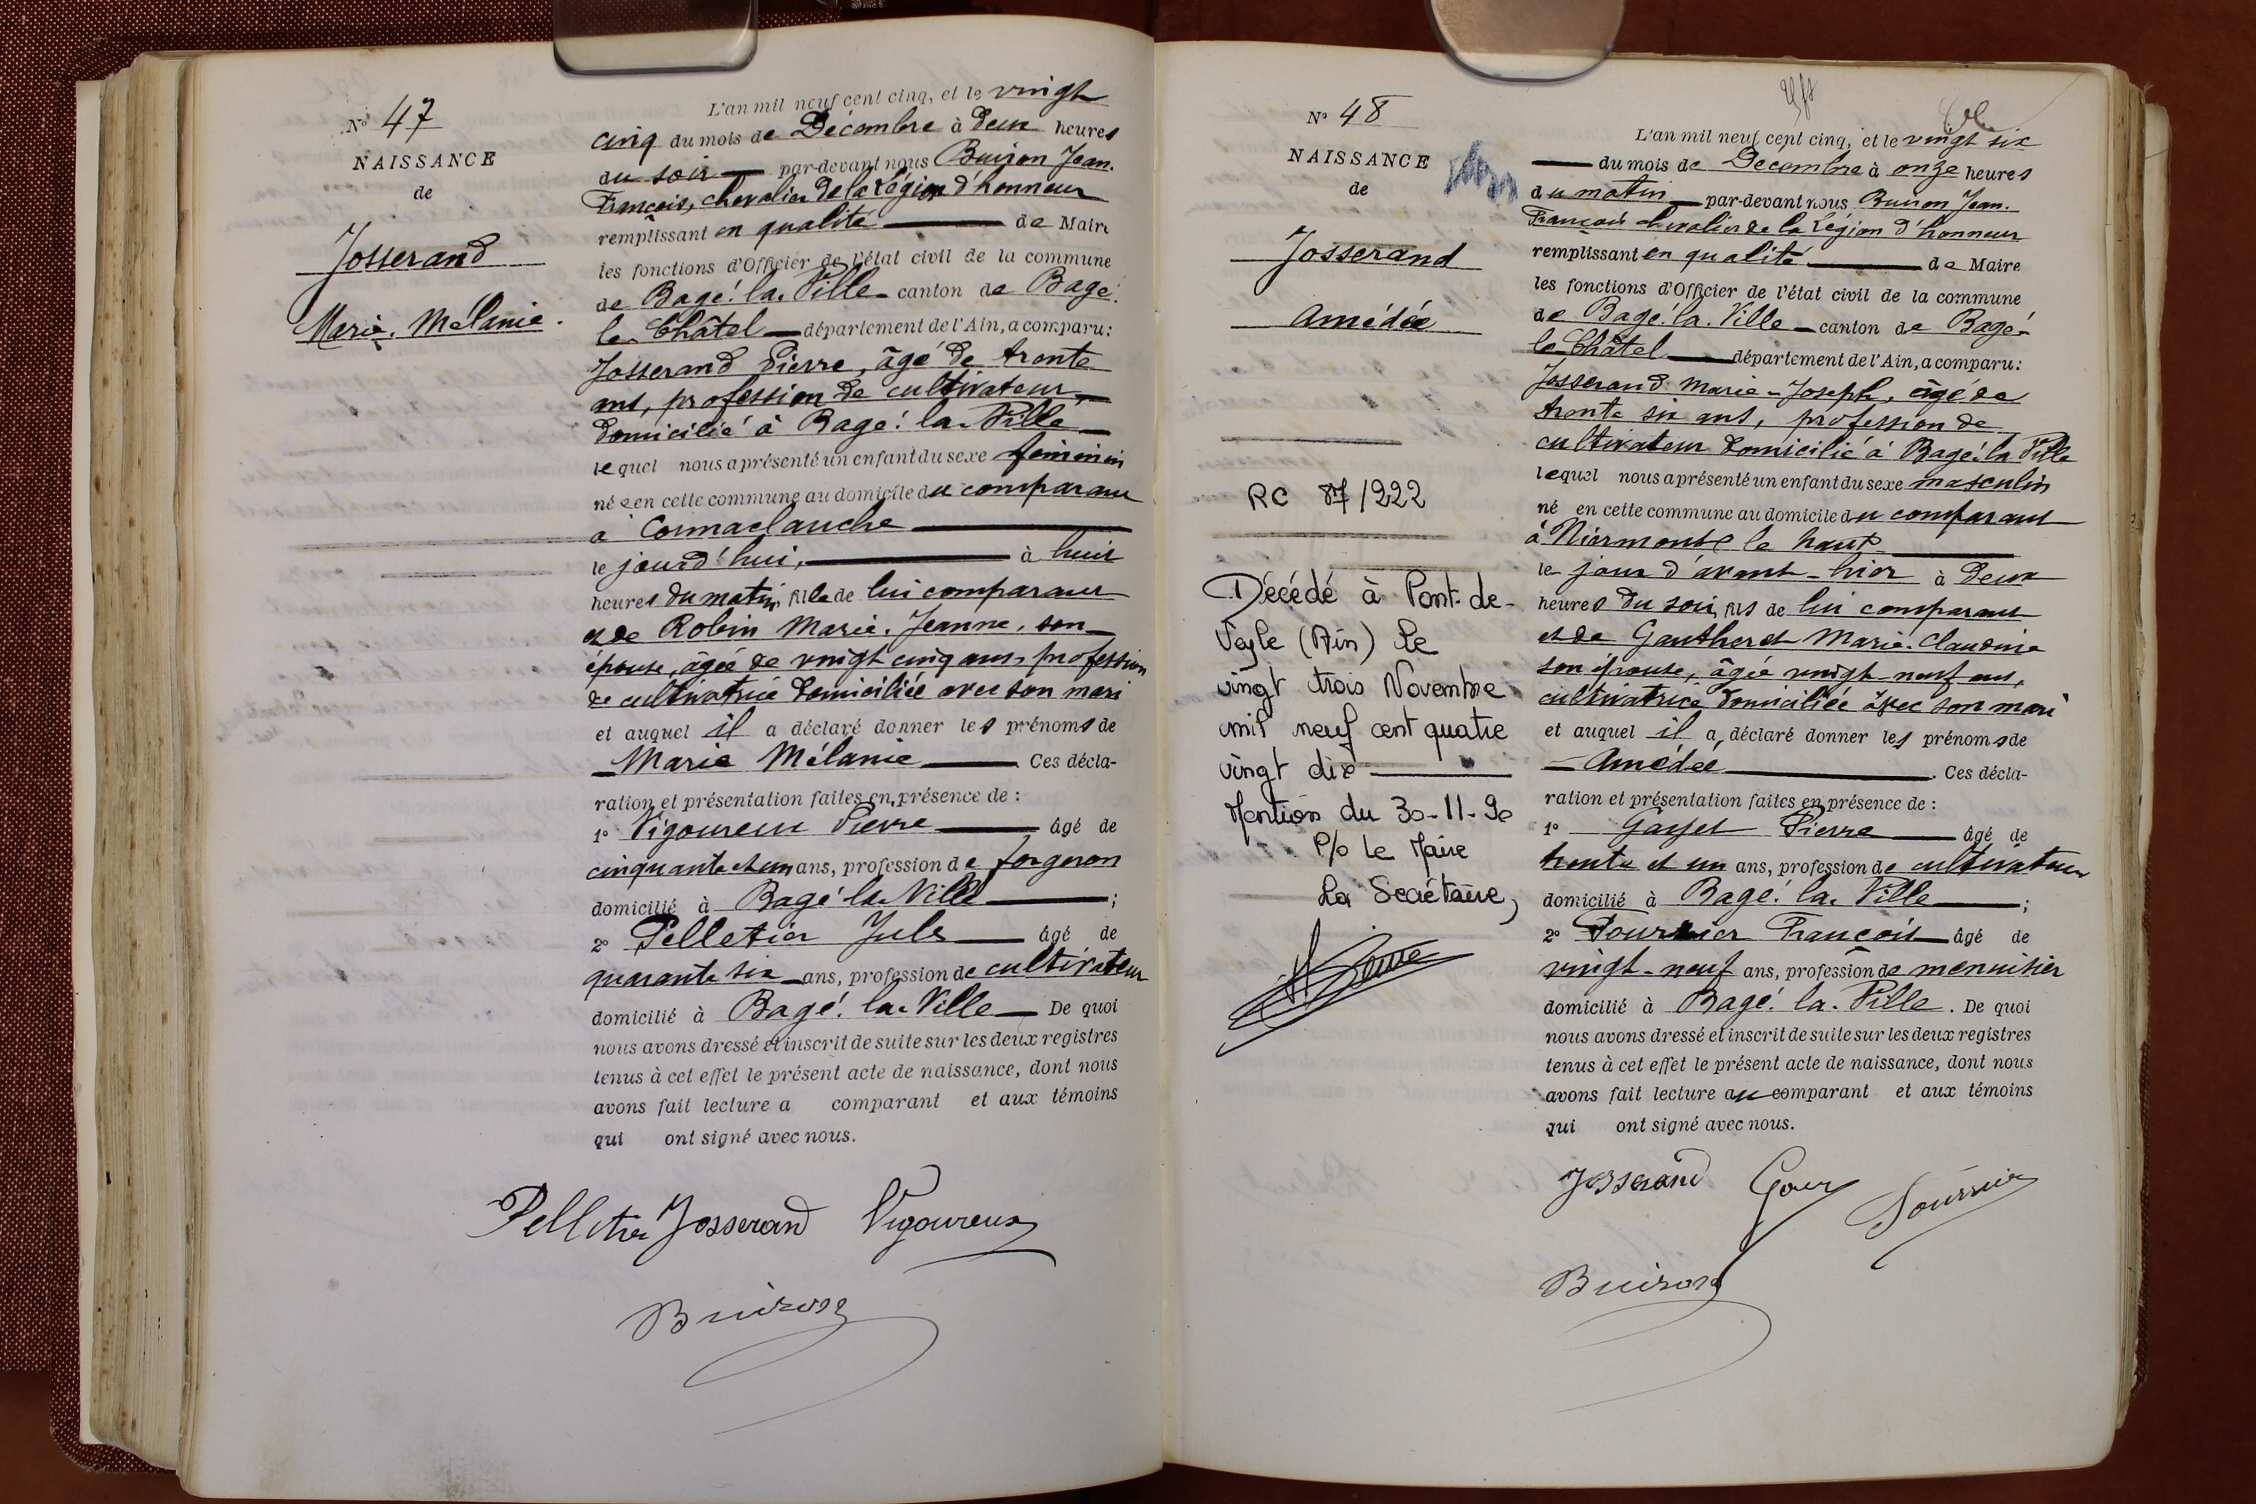 N° 47
NAISSANCE
de
Josserand
Marie. Mélanie.
L'an mil neuf cent cinq, et le vingt
cinq du mois de Décembre à deux heures
du soir par-devant nous Buiron Jean.
François, chevalier de la Légion d'honneur
remplissant en qualité de Maire
les fonctions d'Officier de l'état civil de la commune
de Bagé. la. Ville canton de Bagé.
le Châtel département de l'Ain, a comparu:
Josserand Pierre, âgé de trente
ans, profession de cultivateur,
domicilié à Bagé. la. Ville
lequel nous a présenté un enfant du sexe féminin
née en cette commune au domicile du comparant
à Connaclauche
le jourd'hui, à huit
heures du matin, fille de lui comparant
et de Robin Marie. Jeanne, son
épouse, âgée de vingt cinq ans, profession
de cultivatrice domiciliée avec son mari
et auquel il a déclaré donner les prénoms de
Marie Mélanie Ces décla-
ration et présentation faites en présence de :
1° Vigoureux Pierre âgé de
cinquante et un ans, profession de forgeron
domicilié à Bagé la Ville ;
2° Pelletier Jules âgé de
quarante six ans, profession de cultivateur
domicilié à Bagé. la. Ville De quoi
nous avons dressé et inscrit de suite sur les deux registres
tenus à cet effet le présent acte de naissance, dont nous
avons fait lecture a comparant et aux témoins
qui ont signé avec nous.
Pelletier Josserand Vigoureux
Buiron
N° 48
NAISSANCE
de
Josserand
Amédée
RC 87/222
Décédé à Pont-de-
Veyle (Ain) le
vingt trois Novembre
mil neuf cent quatre
vingt dix
Mention du 30-11-90
P/o Le Maire
La Secrétaire,
L'an mil neuf cent cinq, et le vingt six
du mois de Décembre à onze heures
du matin par-devant nous Buiron Jean.
François chevalier de la Légion d'honneur
remplissant en qualité de Maire
les fonctions d'Officier de l'état civil de la commune
de Bagé. la. Ville canton de Bagé-
le Châtel département de l'Ain, a comparu:
Josserand Marie-Joseph, âgé de
trente six ans, profession de
cultivateur domicilié à Bagé. la Ville
lequel nous a présenté un enfant du sexe masculin
né en cette commune au domicile du comparant
à Niermont le haut
le jour d'avant-hier à deux
heures du soir, fils de lui comparant
et de Gautheret Marie. Claudine
son épouse, âgée vingt-neuf ans,
cultivatrice domiciliée avec son mari
et auquel il a déclaré donner les prénoms de
Amédée . Ces décla-
ration et présentation faites en présence de :
1° Pierre âgé de
trente et un ans, profession de cultivateur
domicilié à Bagé. la. Ville ;
2° Fournier François âgé de
vingt-neuf ans, profession de menuisier
domicilié à Bagé. la. Ville. De quoi
nous avons dressé et inscrit de suite sur les deux registres
tenus à cet effet le présent acte de naissance, dont nous
avons fait lecture au comparant et aux témoins
qui ont signé avec nous.
Josserand
Buiron